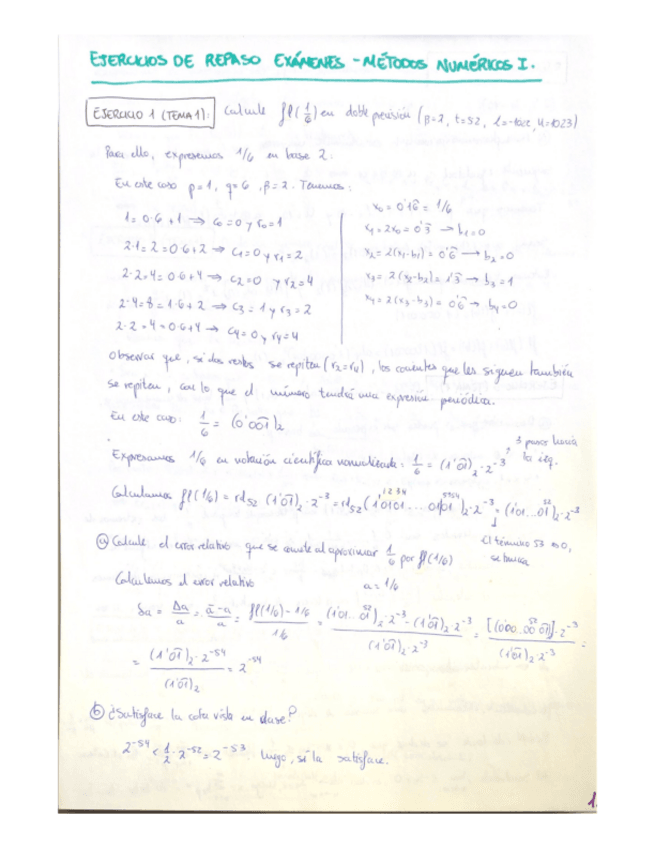 EJERCICIOS DE REPASO EXÁMENES - MÉTODOS NUMÉRICOS I.
EJERCICIO 1 (TEMA 1): Calcule fl(1/6) en doble precisión (β=2, t=52, L=-1022, U=1023)
Para ello, expresemos 1/6 en base 2:
En este caso p=1, q=6, β=2. Tenemos:
1=0·6+1 → c₀=0 y r₀=1
2·1=2=0·6+2 → c₁=0 y r₁=2
2·2=4=0·6+4 → c₂=0 y r₂=4
2·4=8=1·6+2 → c₃=1 y r₃=2
2·2=4=0·6+4 → c₄=0 y r₄=4
x₀=0'16̂=1/6
x₁=2x₀=0'3̂ → b₁=0
x₂=2(x₁-b₁)=0'6̂ → b₂=0
x₃=2(x₂-b₂)=1'3̂ → b₃=1
x₄=2(x₃-b₃)=0'6̂ → b₄=0
Observar que, si dos restos se repiten (r₂=r₄), los cocientes que les siguen también
se repiten, con lo que el número tendrá una expresión periódica.
En este caso: 1/6 = (0'001̂)₂
3 pasos hacia
la izq.
Expresamos 1/6 en notación científica normalizada: 1/6 = (1'01̂)₂·2⁻³
Calculamos fl(1/6) = rd₅₂ (1'01̂)₂·2⁻³ = rd₅₂(1'0101....01|01)₂·2⁻³ = (1'01...01)₂·2⁻³
El término 53 es 0,
se trunca
a) Calcule el error relativo que se comete al aproximar 1/6 por fl(1/6)
Calculamos el error relativo a=1/6
δa = Δa/a = (ā-a)/a = (fl(1/6)-1/6)/(1/6) =
b) ¿Satisface la cota vista en clase?
2⁻⁵⁴ < 1/2·2⁻⁵² = 2⁻⁵³ luego, sí la satisface.
1.